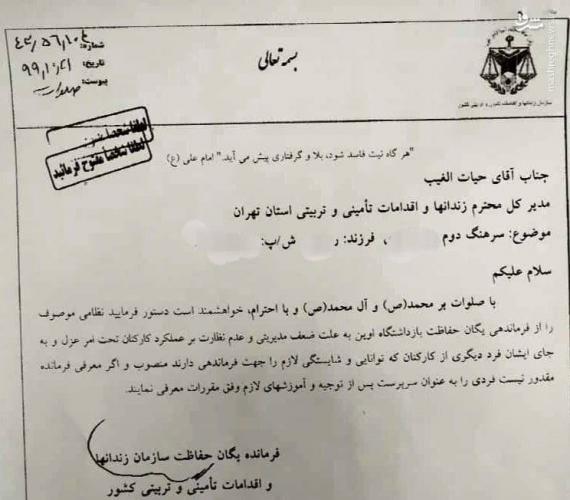 بسمه تعالی
شماره: ۴۳/۵۶/۱۰۴
تاریخ: ۹۹/۱۰/۲۱
پیوست:
سازمان زندانها و اقدامات تأمینی و تربیتی کشور
لطفا شخصاً مفتوح فرمائید
"هر گاه نیت فاسد شود، بلا و گرفتاری پیش می آید." امام علی (ع)
جناب آقای حیات الغیب
مدیر کل محترم زندانها و اقدامات تأمینی و تربیتی استان تهران
موضوع: سرهنگ دوم ، فرزند: ر ش/پ:
سلام علیکم
با صلوات بر محمد(ص) و آل محمد(ص) و با احترام، خواهشمند است دستور فرمایید نظامی موصوف
را از فرماندهی یگان حفاظت بازداشتگاه اوین به علت ضعف مدیریتی و عدم نظارت بر عملکرد کارکنان تحت امر عزل و به
جای ایشان فرد دیگری از کارکنان که توانایی و شایستگی لازم را جهت فرماندهی دارند منصوب و اگر معرفی فرمانده
مقدور نیست فردی را به عنوان سرپرست پس از توجیه و آموزشهای لازم وفق مقررات معرفی نمایند.
فرمانده یگان حفاظت سازمان زندانها
و اقدامات تأمینی و تربیتی کشور